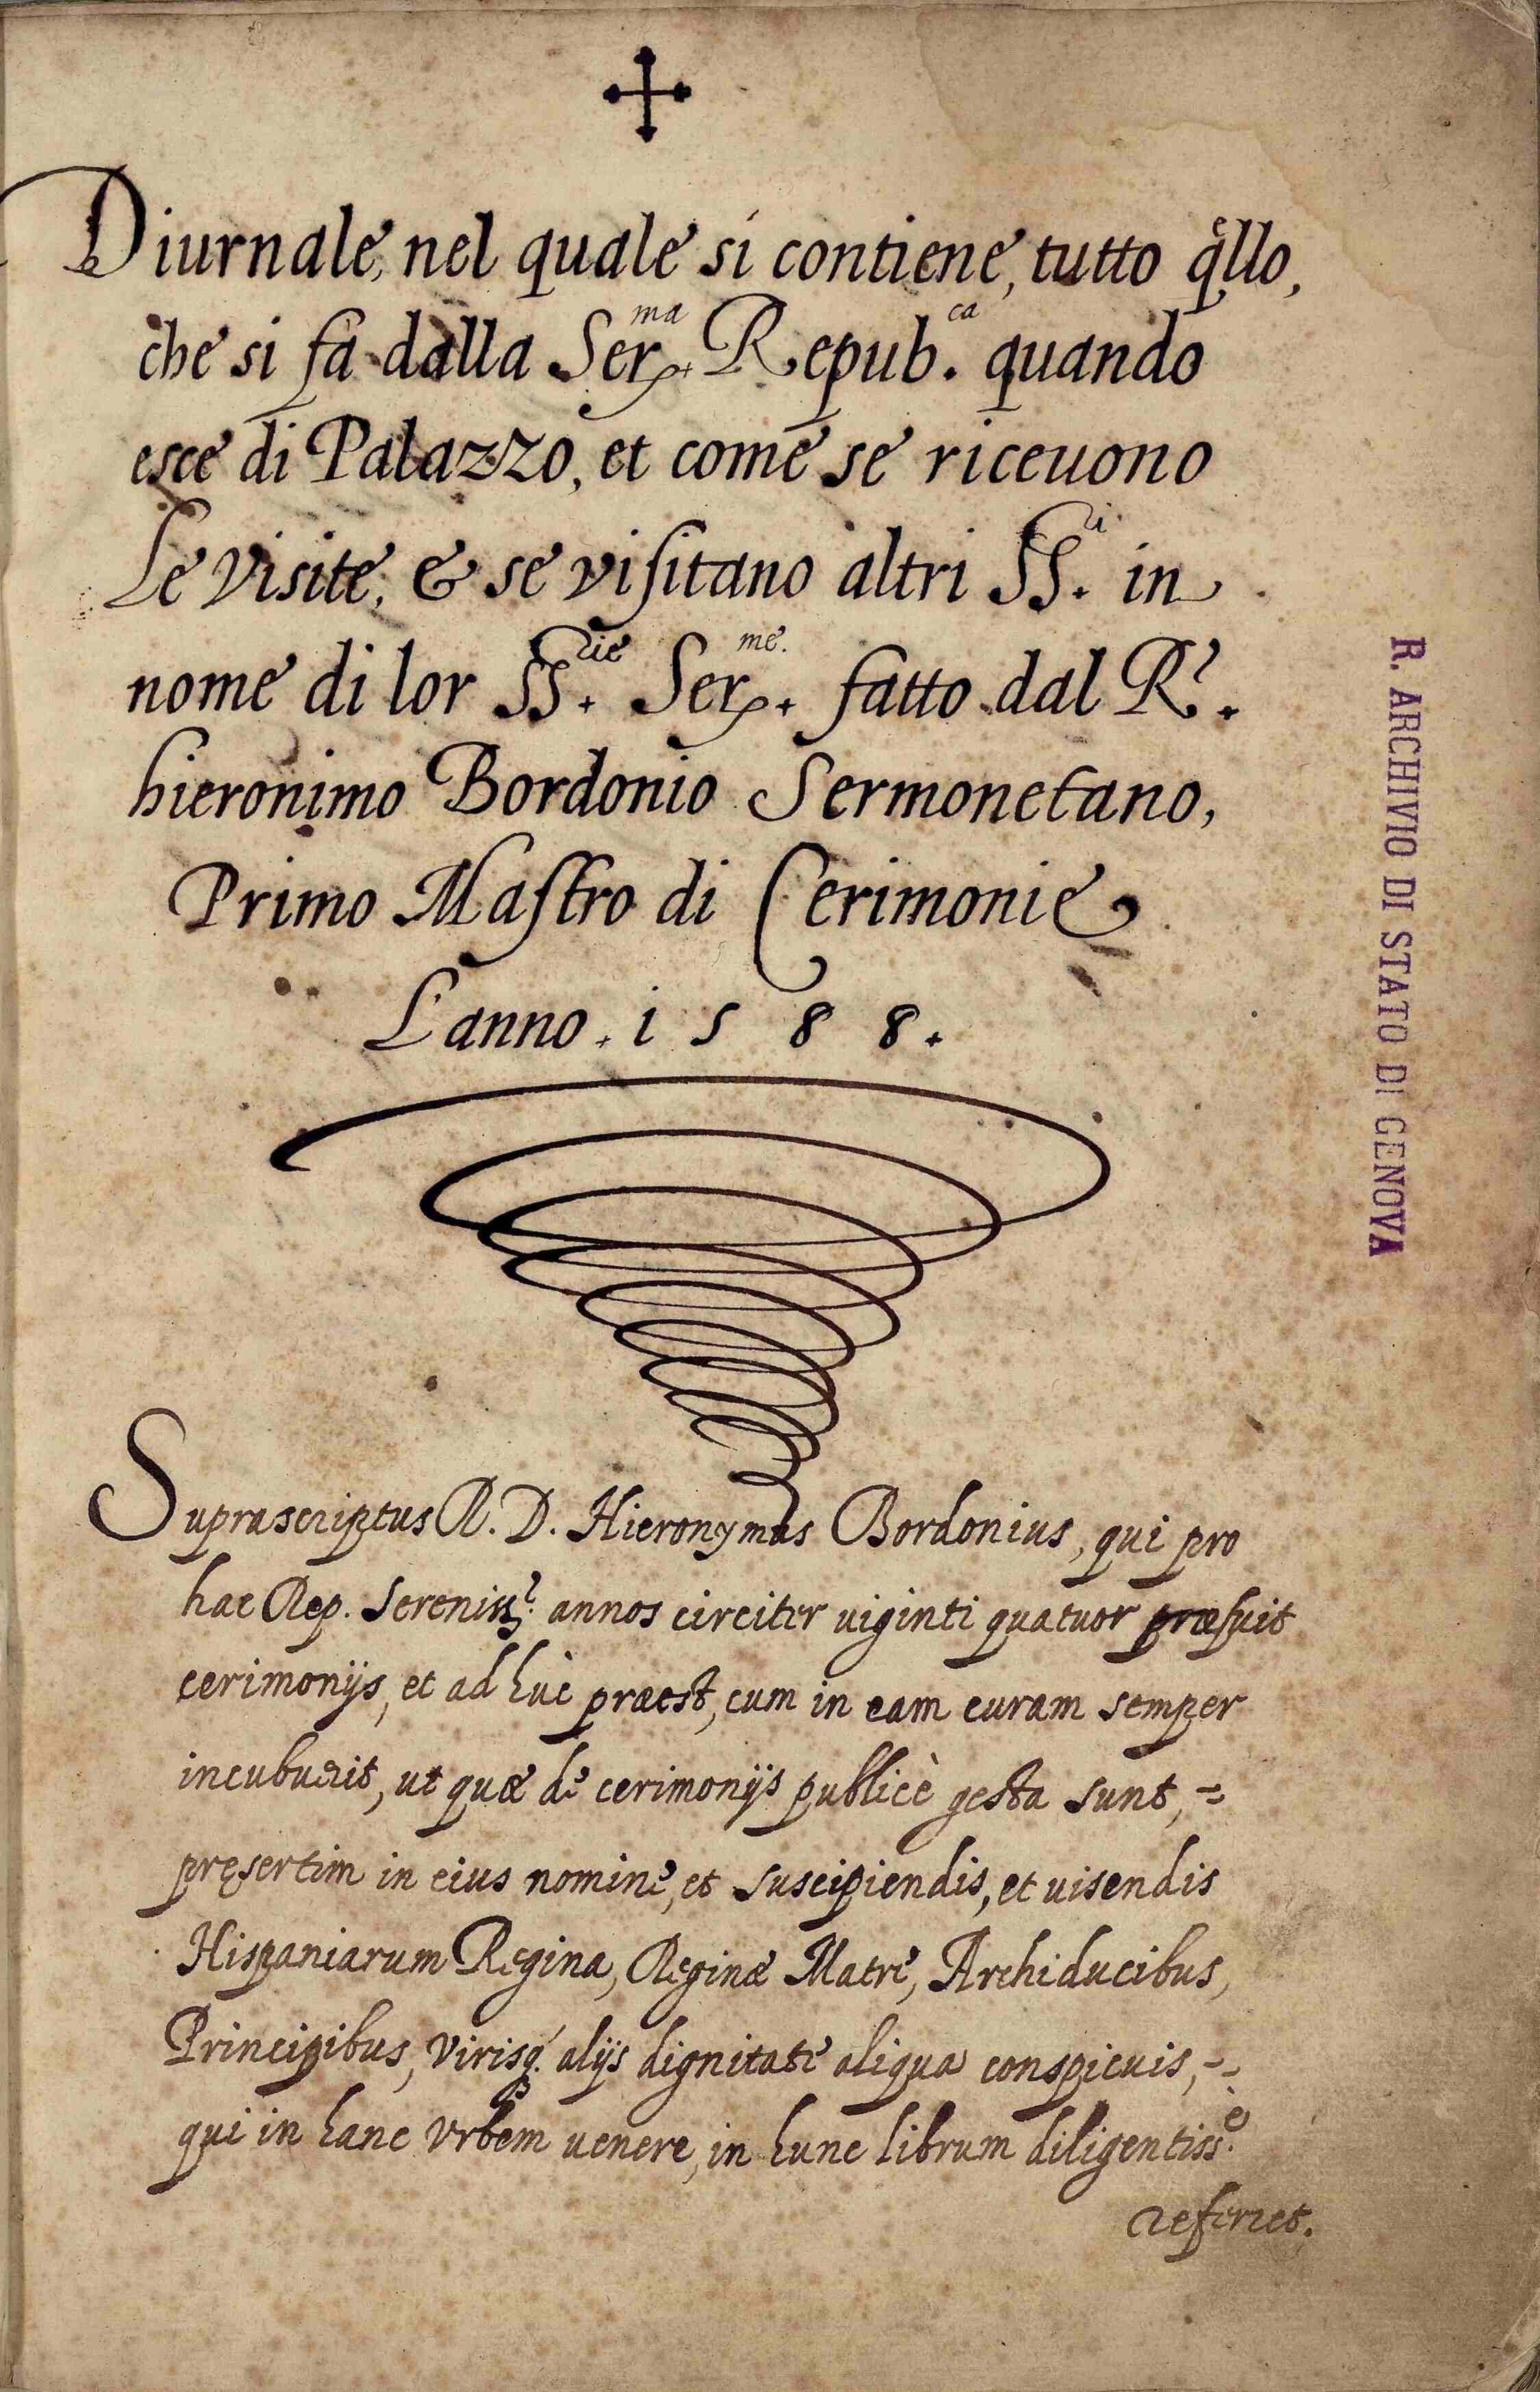 Diurnale, nel quale si contiene, tutto q̊llo,
che si fa dalla Ser.ma Repub.ca quando
esce di Palazzo, et come se riceuono
Le visite, & se visitano altri SS.i in
nome di lor SS.rie Ser.me fatto dal R.
hieronimo Bordonio Sermonetano,
Primo Mastro di Cerimonie
L'anno. 1588.
Suprascriptus R. D. Hieronymus Bordonius, qui pro
hac Rep. Sereniss. annos circiter viginti quatuor præfuit
cerimonijs, et ad huc præest, cum in eam curam semper
incubuerit, ut quæ de cerimonijs publicè gesta sunt,
pręsertim in eius nomine, et suscipiendis, et uisendis
Hispaniarum Regina, Reginæ Matre, Archiducibus,
Principibus, Virisq. alijs dignitate aliqua conspicuis,
qui in hanc Vrbem uenere, in hunc librum diligentiss.e
referret.
R. ARCHIVIO DI STATO DI GENOVA